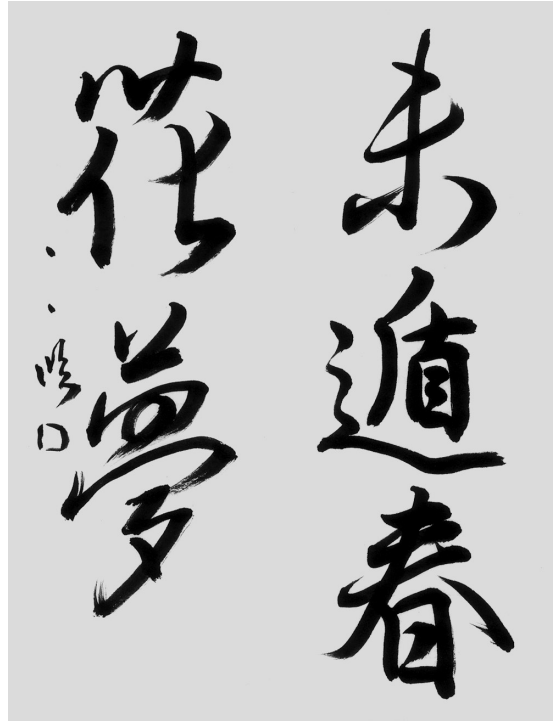 未遁春
花夢
臨